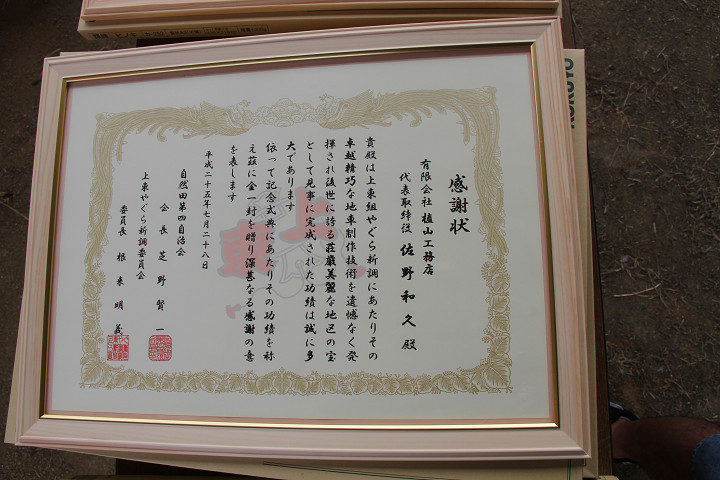 感謝状
有限会社 植山工務店
代表取締役 佐野和久 殿
貴殿は上東組やぐら新調にあたりその
卓越精巧な地車制作技術を遺憾なく発
揮され後世に誇る荘厳美麗な地区の宝
として見事に完成された功績は誠に多
大であります
依って記念式典にあたりその功績を称
え茲に金一封を贈り深甚なる感謝の意
を表します
平成二十五年七月二十八日
自然田第四自治会
会長 芝野賢一
上東やぐら新調委員会
委員長 根来明義
上東
KOKUYO